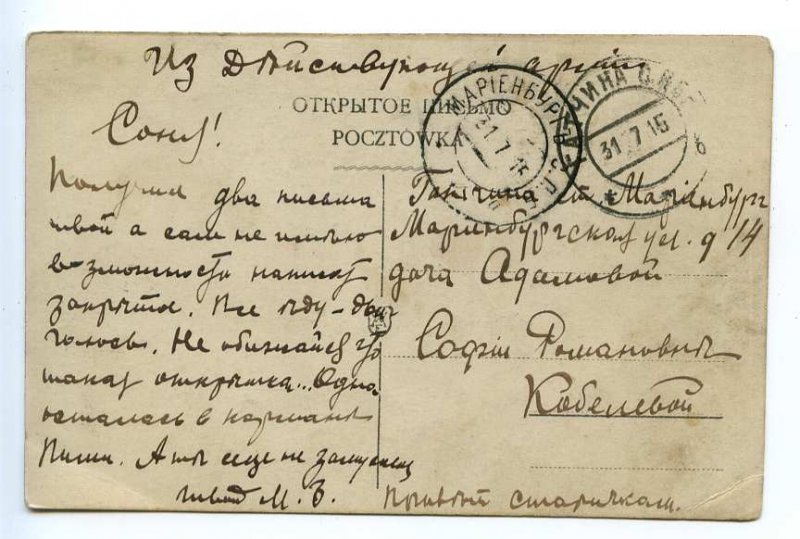 Из Дѣйствующей арміи
ОТКРЫТОЕ ПИСЬМО
POCZTÓWKA
МАРІЕНБУРГЪ С.П.Б.
31.7.15
ЧИНА С.ПБГ
31.7.15
б
Соня!
Получил два письма
твои а сам не имѣю
возможности написать
закрытое. Все
Не обижайся что
такая открытка... Одна
осталась в кармане
Пиши. А ты еще не
твой М. З.
Гатчина ст. Маріенбург
Маріенбургская ул. д 14
дача Адамовой
Софіи Романовны
Кобелевой
Привет старичкам.